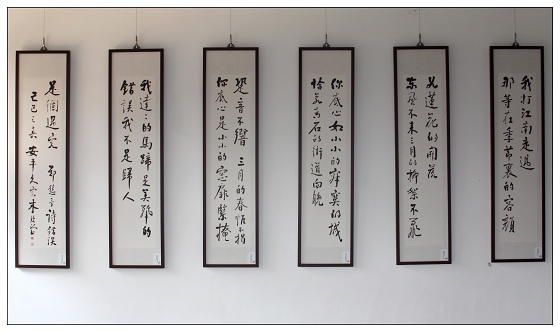 我打江南走過
那等在季節裏的容顏
如蓮花的開落
東風不來三月的柳絮不飛
你底心如小小的寂寞的城
恰若青石的街道向晚
跫音不響 三月的春帷不揭
你底心是小小的窗扉緊掩
我達〻的馬蹄是美麗的
錯誤我不是歸人
是個過客 鄭愁予詩錯誤
己巳之夏 安平